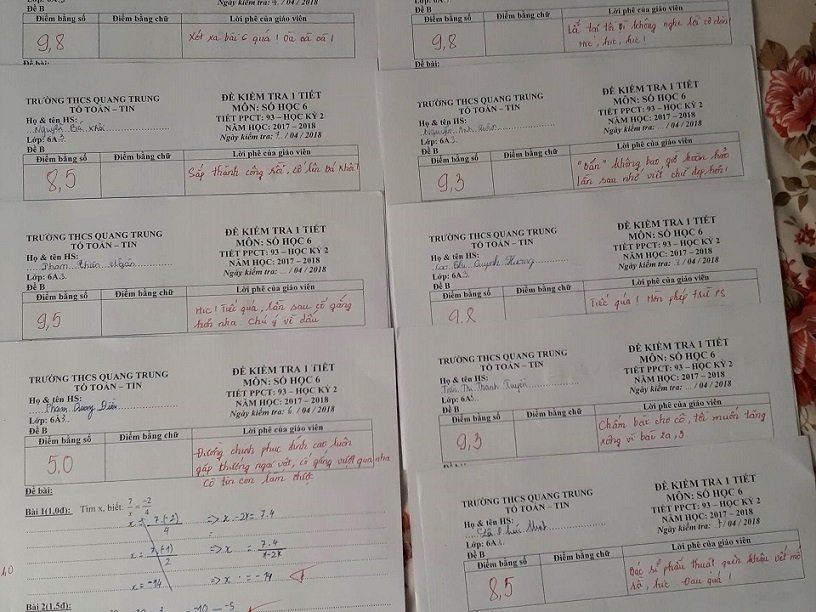 Lớp: 6A3
Ngày kiểm tra: 7/04/2018
Đề B
Điểm bằng số Điểm bằng chữ Lời phê của giáo viên
9,8 Xót xa bài 6 quá! Oà oà oà!
Đề bài:
TRƯỜNG THCS QUANG TRUNG
TỔ TOÁN – TIN
Họ & tên HS:
Nguyễn Bá Khải
Lớp: 6A3
Đề B
ĐỀ KIỂM TRA 1 TIẾT
MÔN: SỐ HỌC 6
TIẾT PPCT: 93 – HỌC KỲ 2
NĂM HỌC: 2017 – 2018
Ngày kiểm tra: 7/04/2018
Điểm bằng số Điểm bằng chữ Lời phê của giáo viên
8,5 Sắp thành công rồi, cố lên Bá Khải!
TRƯỜNG THCS QUANG TRUNG
TỔ TOÁN – TIN
Họ & tên HS:
Phạm Thiên Ngân
Lớp: 6A3
Đề B
ĐỀ KIỂM TRA 1 TIẾT
MÔN: SỐ HỌC 6
TIẾT PPCT: 93 – HỌC KỲ 2
NĂM HỌC: 2017 – 2018
Ngày kiểm tra: .../04/2018
Điểm bằng số Điểm bằng chữ Lời phê của giáo viên
9,5 Hic! Tiếc quá, lần sau cố gắng
hơn nha. Chú ý về dấu
TRƯỜNG THCS QUANG TRUNG
TỔ TOÁN – TIN
Họ & tên HS:
Phạm Dương
Lớp: 6A3
Đề B
ĐỀ KIỂM TRA 1 TIẾT
MÔN: SỐ HỌC 6
TIẾT PPCT: 93 – HỌC KỲ 2
NĂM HỌC: 2017 – 2018
Ngày kiểm tra: 6/04/2018
Điểm bằng số Điểm bằng chữ Lời phê của giáo viên
5,0 Đường chinh phục đỉnh cao luôn
gặp chướng ngại vật, cố gắng vượt qua nha
cô tin con làm được
Đề bài:
Bài 1(1,0đ): Tìm x, biết: 7/x = -2/4
x = 7.(-2)/4 => x.-2 = 7.4
x = 7.(-1)/2 => x = 7.4/-2
x = -14 => x = -14
Bài 2(1,5đ):
Đề B
Điểm bằng số Điểm bằng chữ Lời phê của giáo viên
9,8 Là tại tôi vì không nghe lời cô dặn!
Hic, hic, hic!
Đề bài:
TRƯỜNG THCS QUANG TRUNG
TỔ TOÁN – TIN
Họ & tên HS:
Nguyễn Anh
Lớp: 6A3
Đề B
ĐỀ KIỂM TRA 1 TIẾT
MÔN: SỐ HỌC 6
TIẾT PPCT: 93 – HỌC KỲ 2
NĂM HỌC: 2017 – 2018
Ngày kiểm tra: .../04/2018
Điểm bằng số Điểm bằng chữ Lời phê của giáo viên
9,3 không bao giờ hoàn hảo
lần sau nhớ viết chữ đẹp hơn!
TRƯỜNG THCS QUANG TRUNG
TỔ TOÁN – TIN
Họ & tên HS:
Cao Thị Quỳnh Hương
Lớp: 6A3
Đề B
ĐỀ KIỂM TRA 1 TIẾT
MÔN: SỐ HỌC 6
TIẾT PPCT: 93 – HỌC KỲ 2
NĂM HỌC: 2017 – 2018
Ngày kiểm tra: 7/04/2018
Điểm bằng số Điểm bằng chữ Lời phê của giáo viên
9,8 Tiếc quá! Hờn phép trừ PS
TRƯỜNG THCS QUANG TRUNG
TỔ TOÁN – TIN
Họ & tên HS:
Trần Thị Thanh Tuyền
Lớp: 6A3
Đề B
ĐỀ KIỂM TRA 1 TIẾT
MÔN: SỐ HỌC 6
TIẾT PPCT: 93 – HỌC KỲ 2
NĂM HỌC: 2017 – 2018
Ngày kiểm tra: .../04/2018
Điểm bằng số Điểm bằng chữ Lời phê của giáo viên
9,3 Chấm bài cho cô, tôi muốn tăng
xông vì bài 2a,3
TRƯỜNG THCS QUANG TRUNG
TỔ TOÁN – TIN
Họ & tên HS:
Lớp: 6A3
Đề B
ĐỀ KIỂM TRA 1 TIẾT
MÔN: SỐ HỌC 6
TIẾT PPCT: 93 – HỌC KỲ 2
NĂM HỌC: 2017 – 2018
Ngày kiểm tra: 7/04/2018
Điểm bằng số Điểm bằng chữ Lời phê của giáo viên
8,5 Bác sĩ phẫu thuật quên khâu vết mổ
rồi, hic. Đau quá!